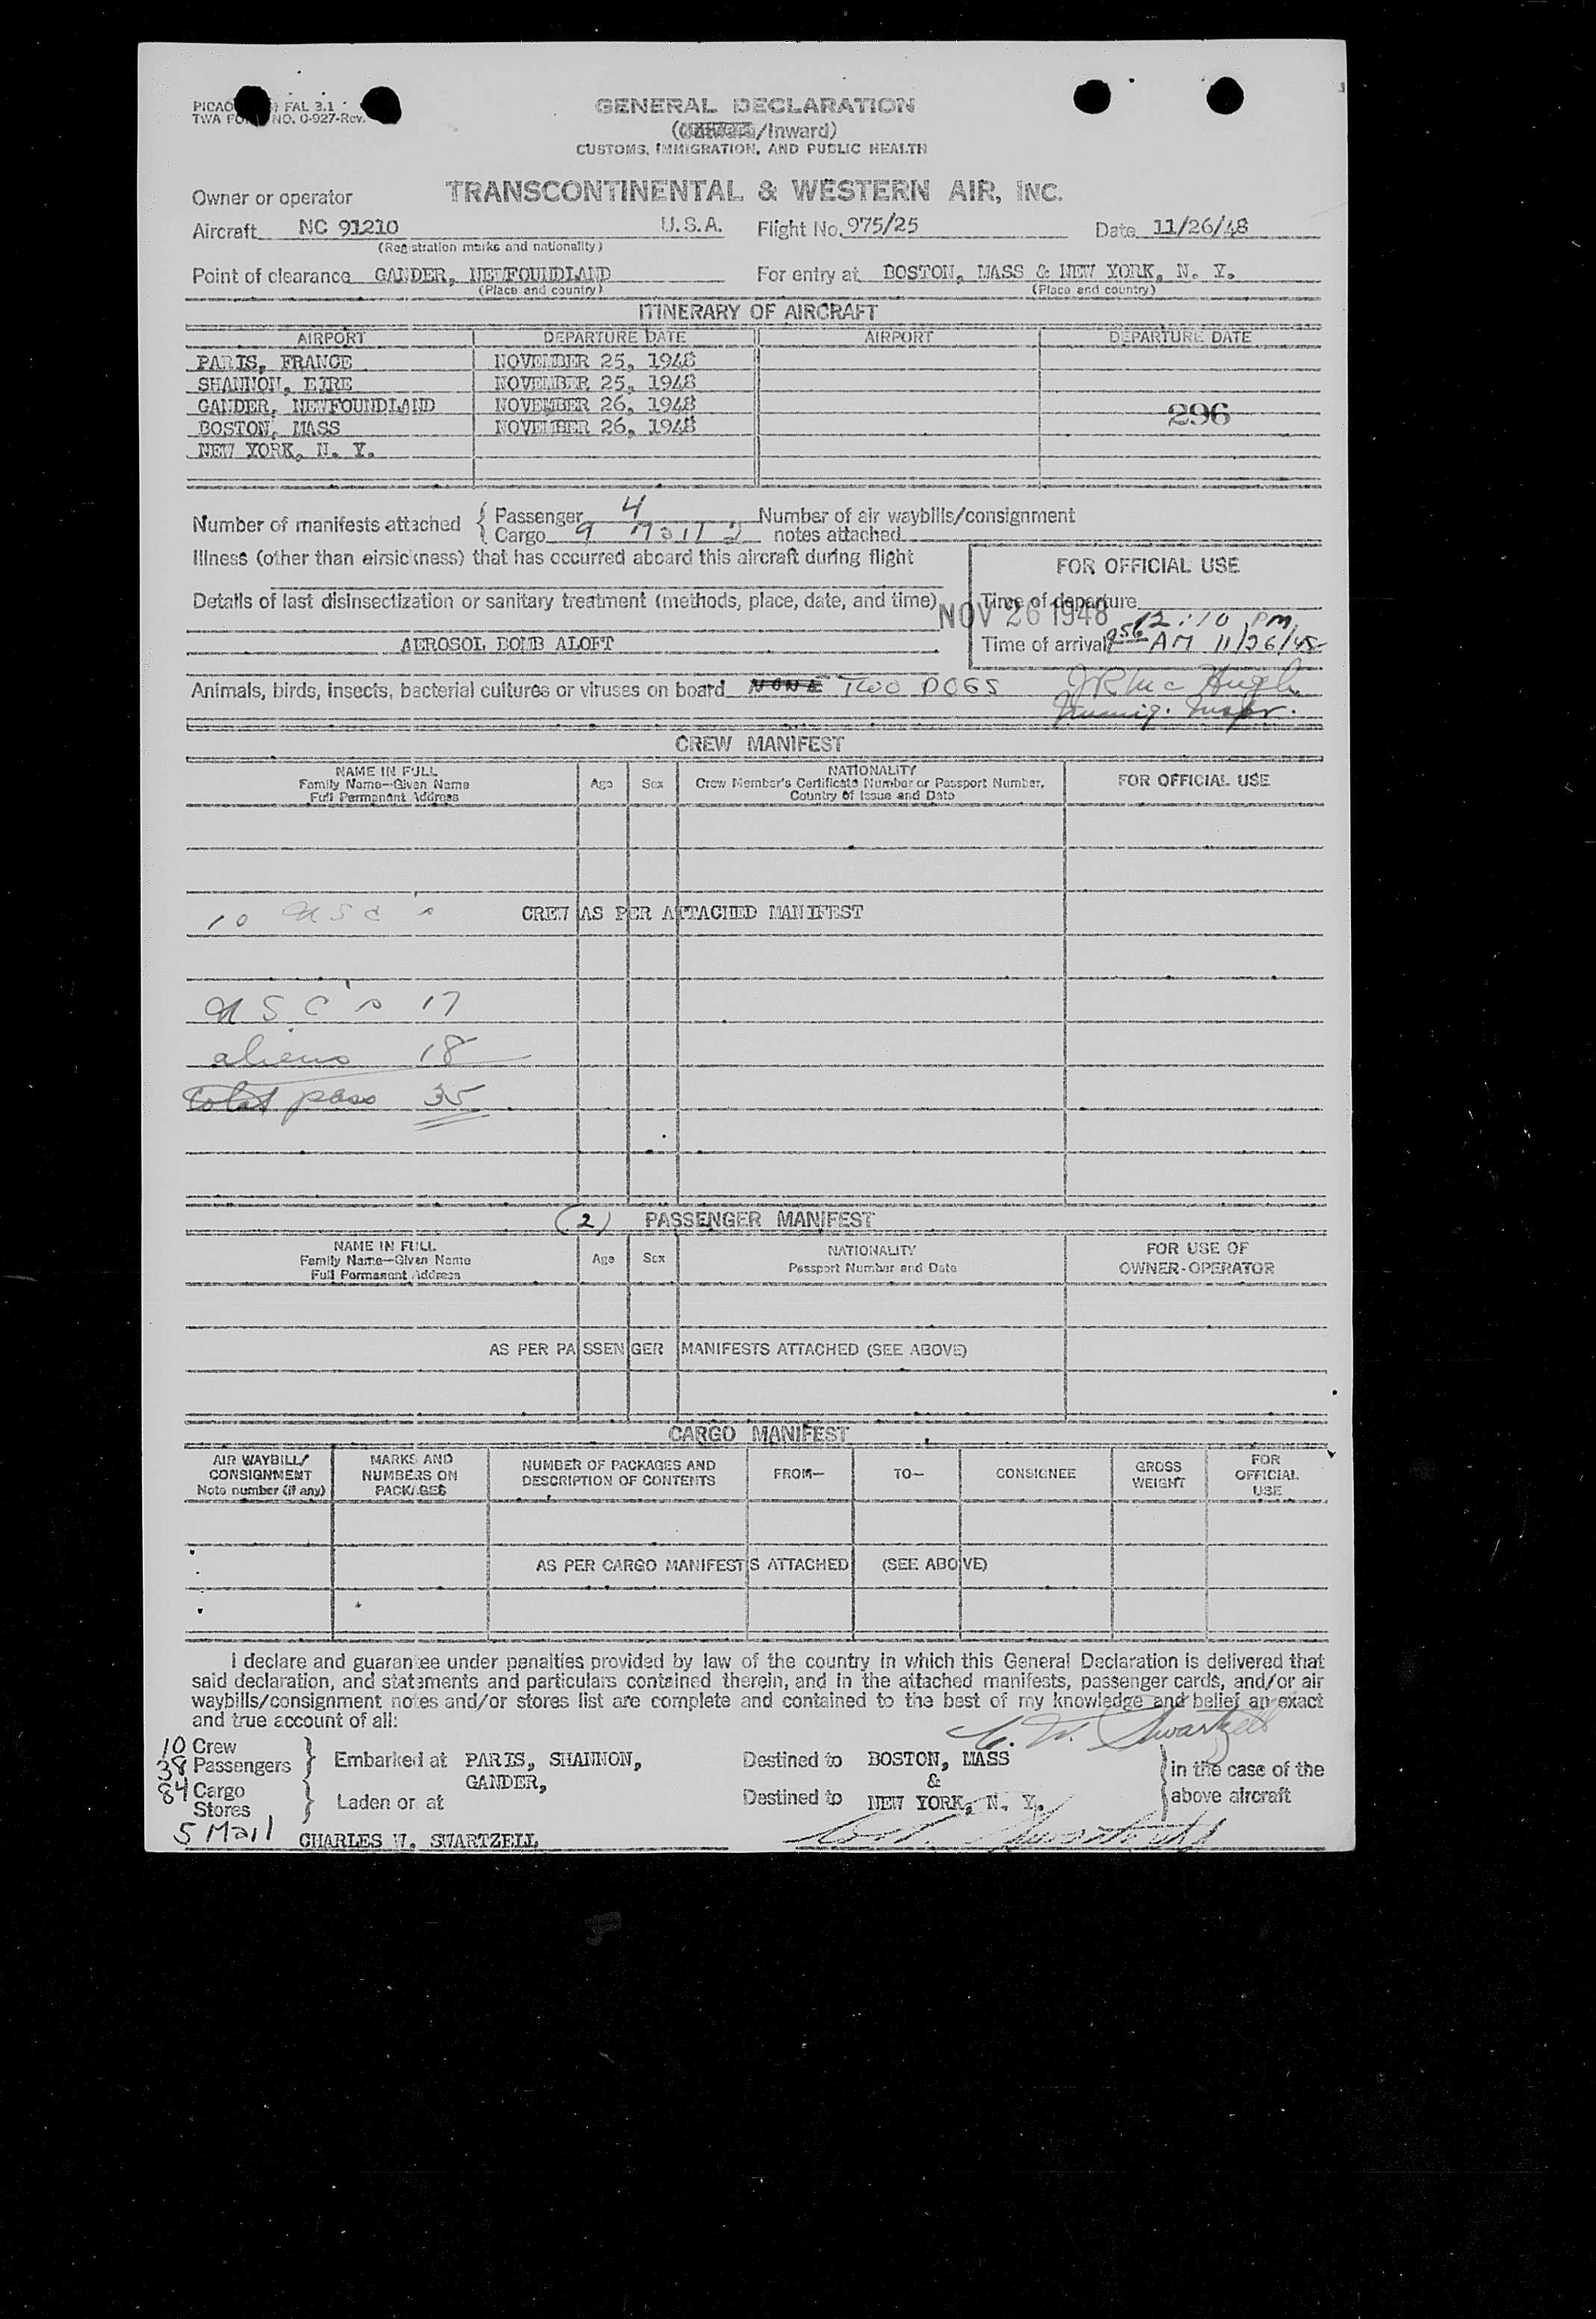 PICAO FAL 3.1
TWA FORM NO. 0-927-Rev.
GENERAL DECLARATION
(/Inward)
CUSTOMS, IMMIGRATION, AND PUBLIC HEALTH
Owner or operator TRANSCONTINENTAL & WESTERN AIR, INC.
Aircraft NC 91210 U.S.A. Flight No. 975/25 Date 11/26/48
(Registration marks and nationality)
Point of clearance GANDER, NEWFOUNDLAND For entry at BOSTON, MASS & NEW YORK, N. Y.
(Place and country) (Place and country)
ITINERARY OF AIRCRAFT
AIRPORT DEPARTURE DATE AIRPORT DEPARTURE DATE
PARIS, FRANCE NOVEMBER 25, 1948
SHANNON, EIRE NOVEMBER 25, 1948
GANDER, NEWFOUNDLAND NOVEMBER 26, 1948
296
BOSTON, MASS NOVEMBER 26, 1948
NEW YORK, N. Y.
Number of manifests attached { Passenger 4 Number of air waybills/consignment
Cargo 9 notes attached
Illness (other than airsickness) that has occurred aboard this aircraft during flight
FOR OFFICIAL USE
Details of last disinsectization or sanitary treatment (methods, place, date, and time)
Time of departure 12:10 PM
NOV 26 1948
AEROSOL BOMB ALOFT
Time of arrival 956 AM 11/26/48
Animals, birds, insects, bacterial cultures or viruses on board NONE TWO DOGS
J R McHugh
Immig. Inspr.
CREW MANIFEST
NAME IN FULL
Family Name—Given Name
Full Permanent Address
Age Sex
NATIONALITY
Crew Member's Certificate Number or Passport Number,
Country of Issue and Date
FOR OFFICIAL USE
10 USC's CREW AS PER ATTACHED MANIFEST
USC's 17
aliens 18
total pass 35
(2) PASSENGER MANIFEST
NAME IN FULL
Family Name—Given Name
Full Permanent Address
Age Sex
NATIONALITY
Passport Number and Date
FOR USE OF
OWNER-OPERATOR
AS PER PASSENGER MANIFESTS ATTACHED (SEE ABOVE)
CARGO MANIFEST
AIR WAYBILL/
CONSIGNMENT
Note number (if any)
MARKS AND
NUMBERS ON
PACKAGES
NUMBER OF PACKAGES AND
DESCRIPTION OF CONTENTS
FROM— TO— CONSIGNEE
GROSS
WEIGHT
FOR
OFFICIAL
USE
AS PER CARGO MANIFESTS ATTACHED (SEE ABOVE)
I declare and guarantee under penalties provided by law of the country in which this General Declaration is delivered that
said declaration, and statements and particulars contained therein, and in the attached manifests, passenger cards, and/or air
waybills/consignment notes and/or stores list are complete and contained to the best of my knowledge and belief an exact
and true account of all:
C. W. Swartzell
10 Crew
38 Passengers
84 Cargo
Stores
5 Mail
Embarked at PARIS, SHANNON,
GANDER,
Laden on at
Destined to BOSTON, MASS
&
Destined to NEW YORK, N. Y.
in the case of the
above aircraft
CHARLES W. SWARTZELL